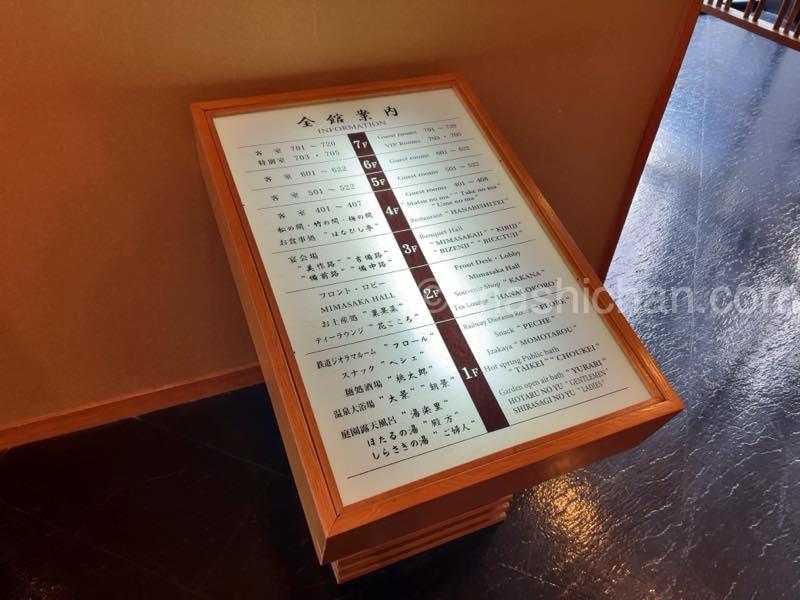 全館案内
INFORMATION
客室 701 ~ 720
特別室 703・705
7F
Guest rooms 701 ~ 720
VIP Rooms 703・705
客室 601 ~ 622
6F
Guest rooms 601 ~ 622
客室 501 ~ 522
5F
Guest rooms 501 ~ 522
客室 401 ~ 407
松の間・竹の間・梅の間
お食事処 "はなむし亭"
4F
Guest rooms 401 ~ 408
"Matsu no ma" "Take no ma"
"Ume no ma"
Restaurant "HANABISHITEI"
宴会場
"美作路" "吉備路"
"備前路" "備中路"
3F
Banquet Hall
"MIMASAKAJI" "KIBIJI"
"BIZENJI" "BICCTUJI"
フロント・ロビー
MIMASAKA HALL
お土産処 "菓果菜"
ティーラウンジ "花ごころ"
2F
Front Desk・Lobby
Mimasaka Hall
Souvenir Shop "KAKANA"
Tea Lounge "HANAGOKORO"
鉄道ジオラマルーム "フロール"
スナック "ペシェ"
麺処酒場 "桃太郎"
温泉大浴場 "大景" "朝景"
庭園露天風呂 "湯楽里"
ほたるの湯 "殿方"
しらさぎの湯 "ご婦人"
1F
Railway Diorama Room
Snack "PECHE"
Izakaya "MOMOTAROU"
Hot spring Public bath
"TAIKEI" "CHOUKEI"
Garden open air bath "YURARI"
HOTARU NO YU "GENTLEMEN"
SHIRASAGI NO YU "LADIES"